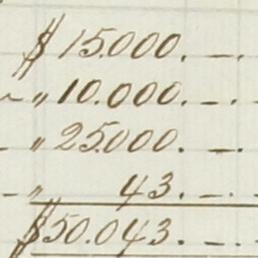 $ 15.000. _ .
„ 10.000. _ .
„ 25.000. _ .
„ 43. _ .
$50.043. _ .